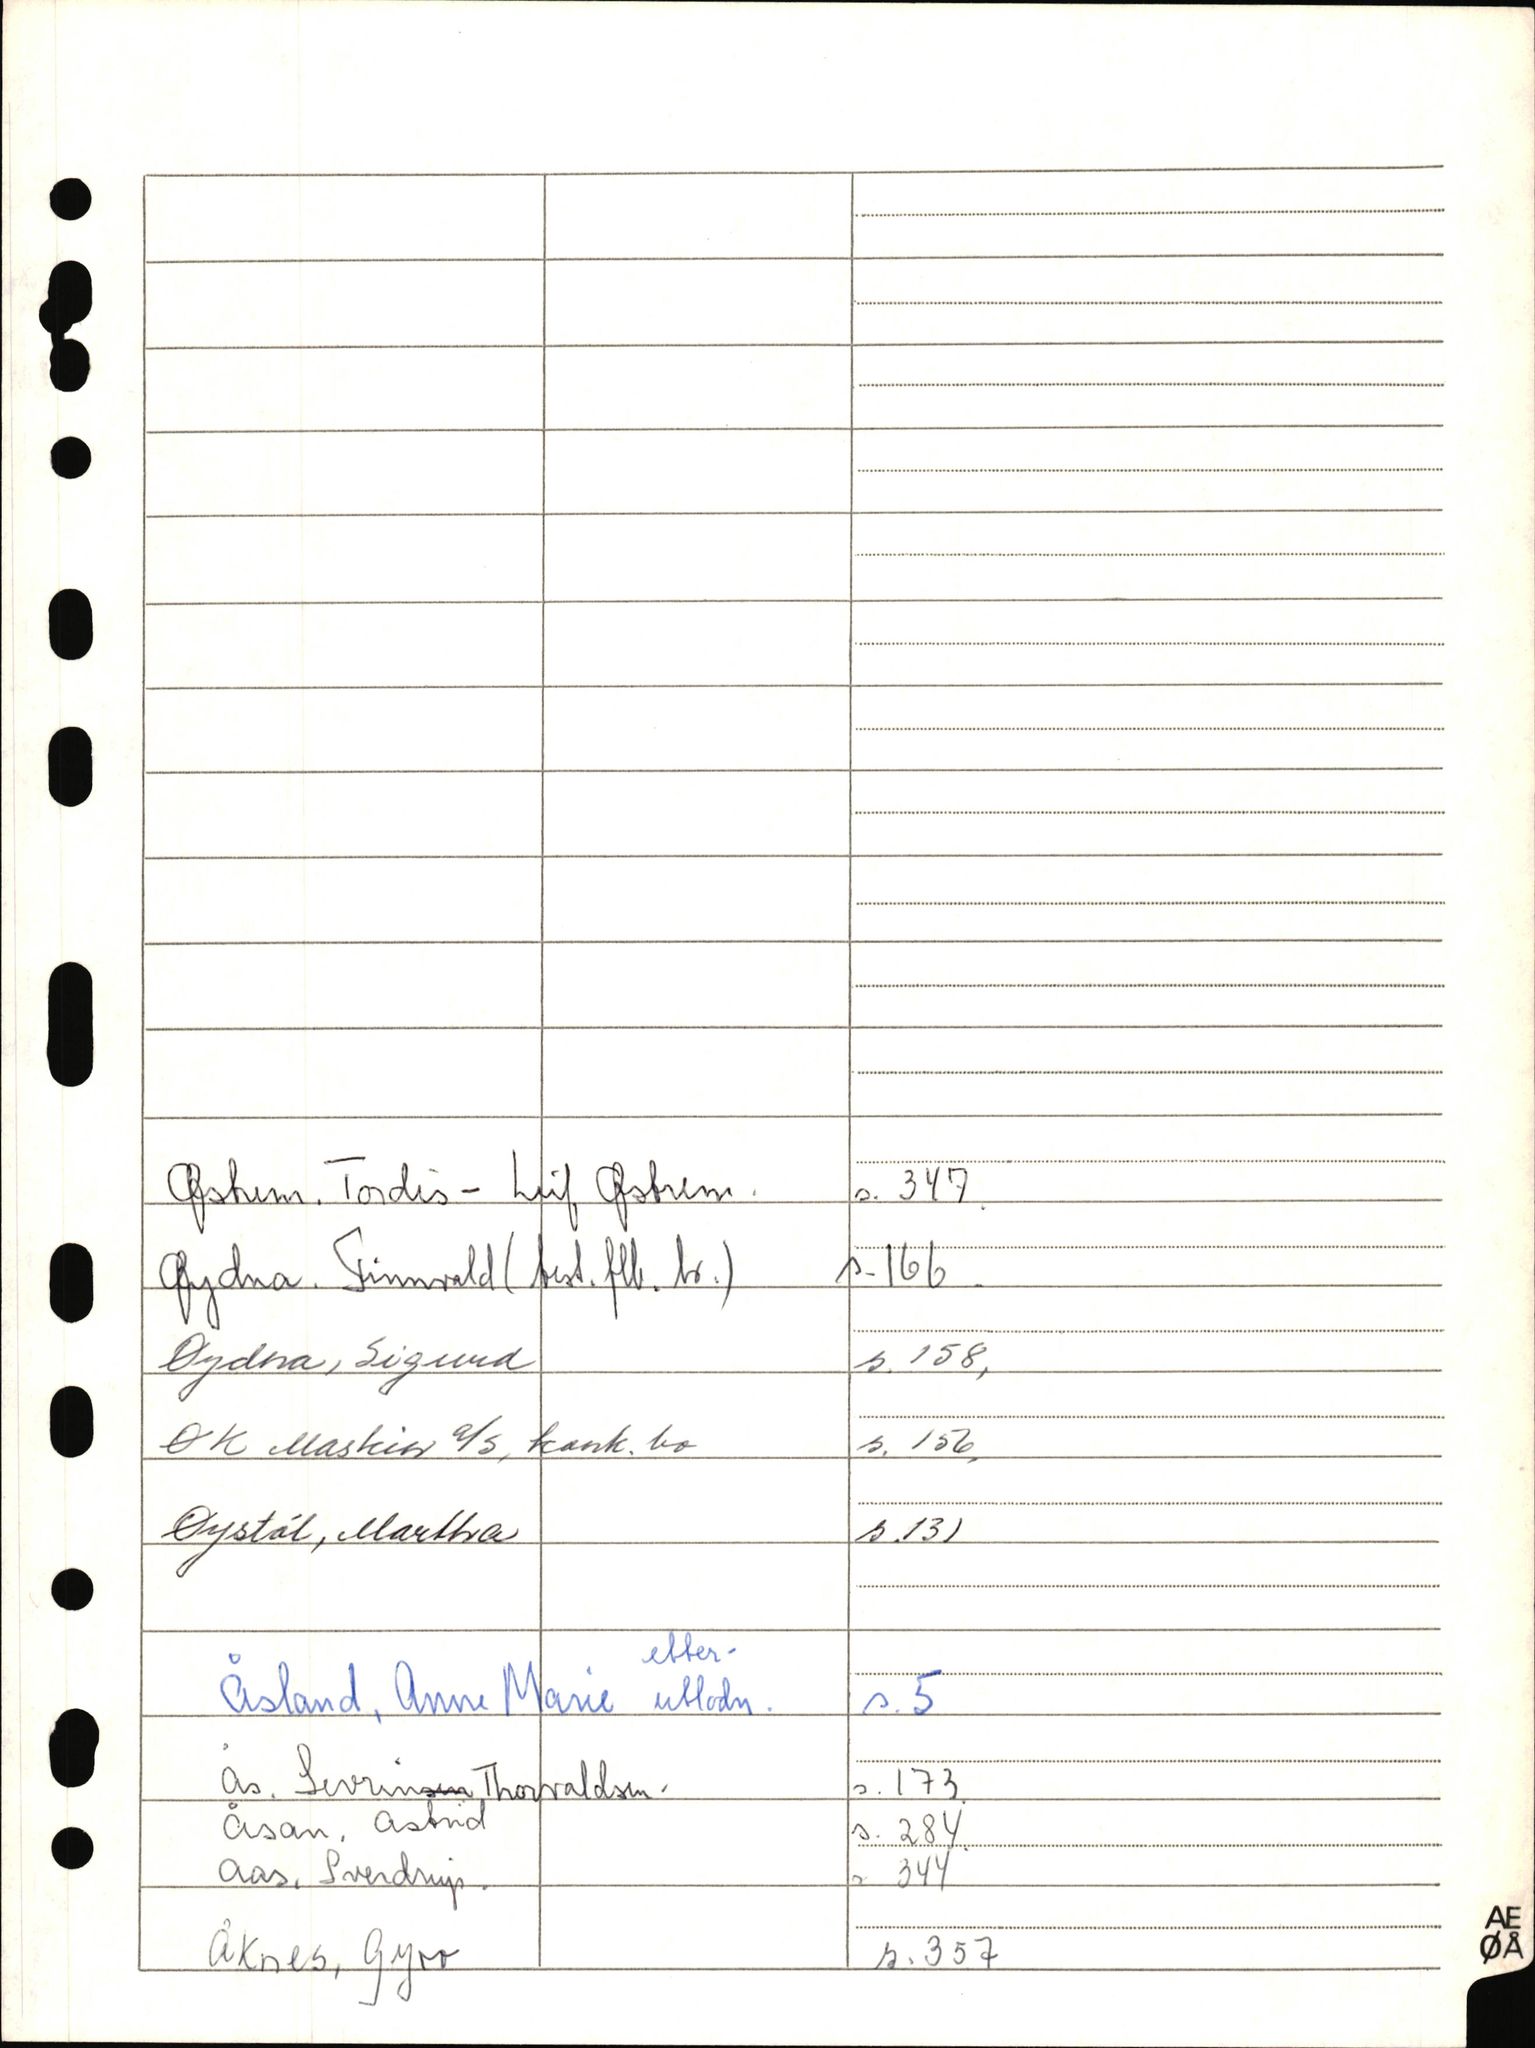 Østrem. Tordis - Leif Østrem. s. 347.
Øydna. Finnvald (best. flb. br.) s. 166.
Øydna, Sigurd s. 158,
ØK Maskin a/s, konk. bo s. 156,
Øystål, Martha s. 131
etter-
Åsland, Anne Marie utlodn. s. 5
Ås. Sevrinsen Thorvaldsen. s. 173.
Åsan, Astrid s. 284.
Aas, Sverdrup. s 344
Åknes, Gyro s. 357
AE
ØÅ